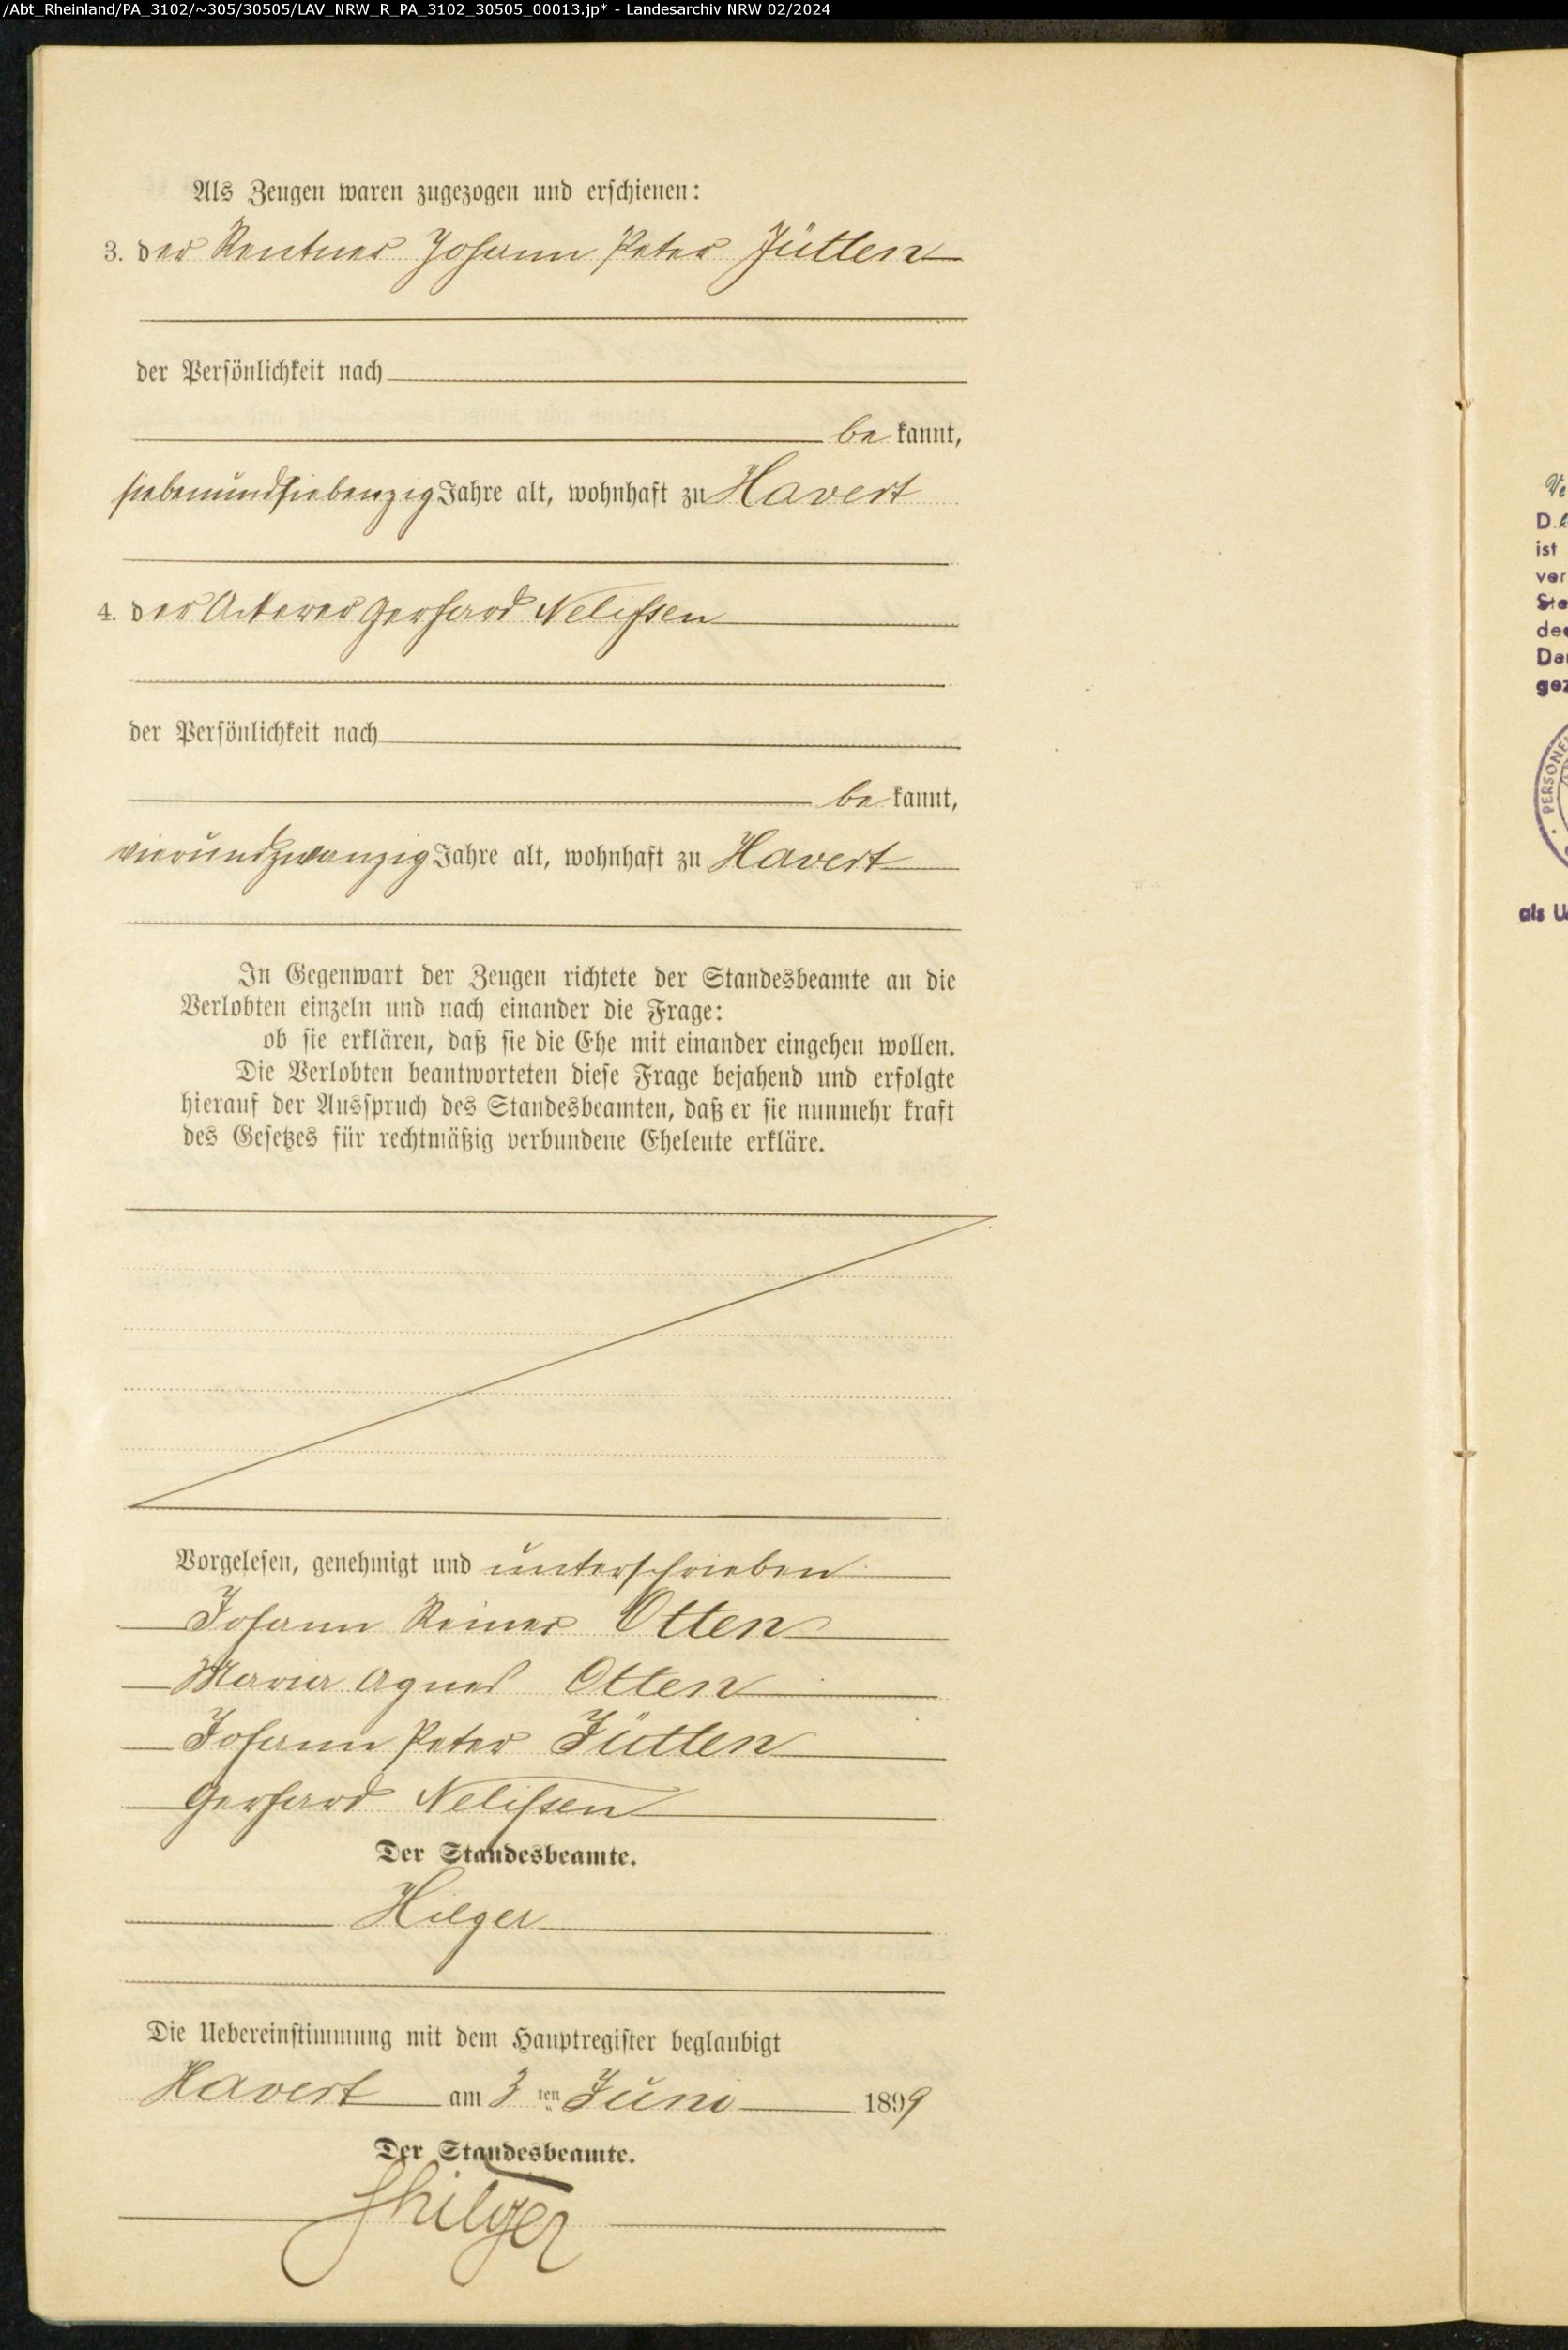 /Abt_Rheinland/PA_3102/~305/30505/LAV_NRW_R_PA_3102_30505_00013.jp* - Landesarchiv NRW 02/2024
Als Zeugen waren zugezogen und erschienen:
3. der Rentner Johann Peter Jütten
der Persönlichkeit nach
be kannt,
siebenundsiebenzig Jahre alt, wohnhaft zu Havert
4. der Ackerer Gerhard Nelißen
der Persönlichkeit nach
be kannt,
vierundzwanzig Jahre alt, wohnhaft zu Havert
In Gegenwart der Zeugen richtete der Standesbeamte an die
Verlobten einzeln und nach einander die Frage:
ob sie erklären, daß sie die Ehe mit einander eingehen wollen.
Die Verlobten beantworteten diese Frage bejahend und erfolgte
hierauf der Ausspruch des Standesbeamten, daß er sie nunmehr kraft
des Gesetzes für rechtmäßig verbundene Eheleute erkläre.
Vorgelesen, genehmigt und unterschrieben
Johann Reiner Otten
Maria Agnes Otten
Johann Peter Jütten
Gerhard Nelißen
Der Standesbeamte.
Hilger
Die Uebereinstimmung mit dem Hauptregister beglaubigt
Havert am 3 ten Juni 1899
Der Standesbeamte.
Hilger
ist
als